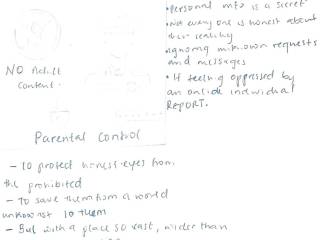 NO Adult
Content.
Parental Control
- To protect honest eyes from
the prohibited
- To save them from a world
unknownst to them
- But with a place so vast, wider than
• Personal info is a secret
• Not everyone is honest about
their reality
• Ignoring unknown requests
and messages
• If feeling oppressed by
an online individual
REPORT.